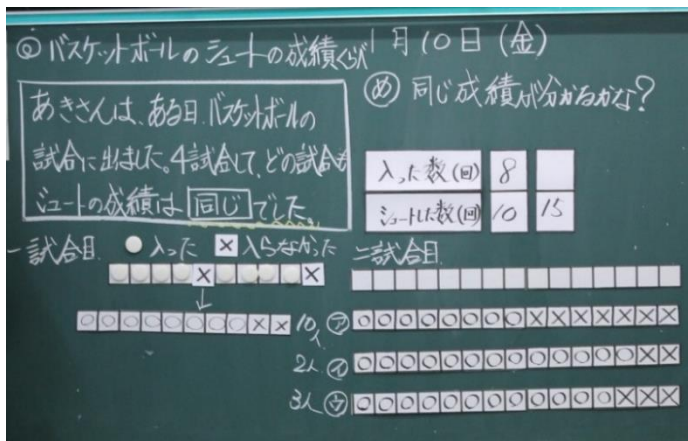 @バスケットボールのシュートの成績くらべ
1月10日(金)
め 同じ成績が分かるかな?
あきさんは、ある日、バスケットボールの
試合に出ました。4試合して、どの試合も
シュートの成績は同じでした。
入った数(回) 8
シュートした数(回) 10 15
一試合目 ○入った ×入らなかった
二試合目
○○○○×○○○○×
↓
○○○○○○○○×× 10人 ㋐ ○○○○○○○○×××××××
2人 ㋑ ○○○○○○○○○○○○○××
3人 ㋒ ○○○○○○○○○○○○×××